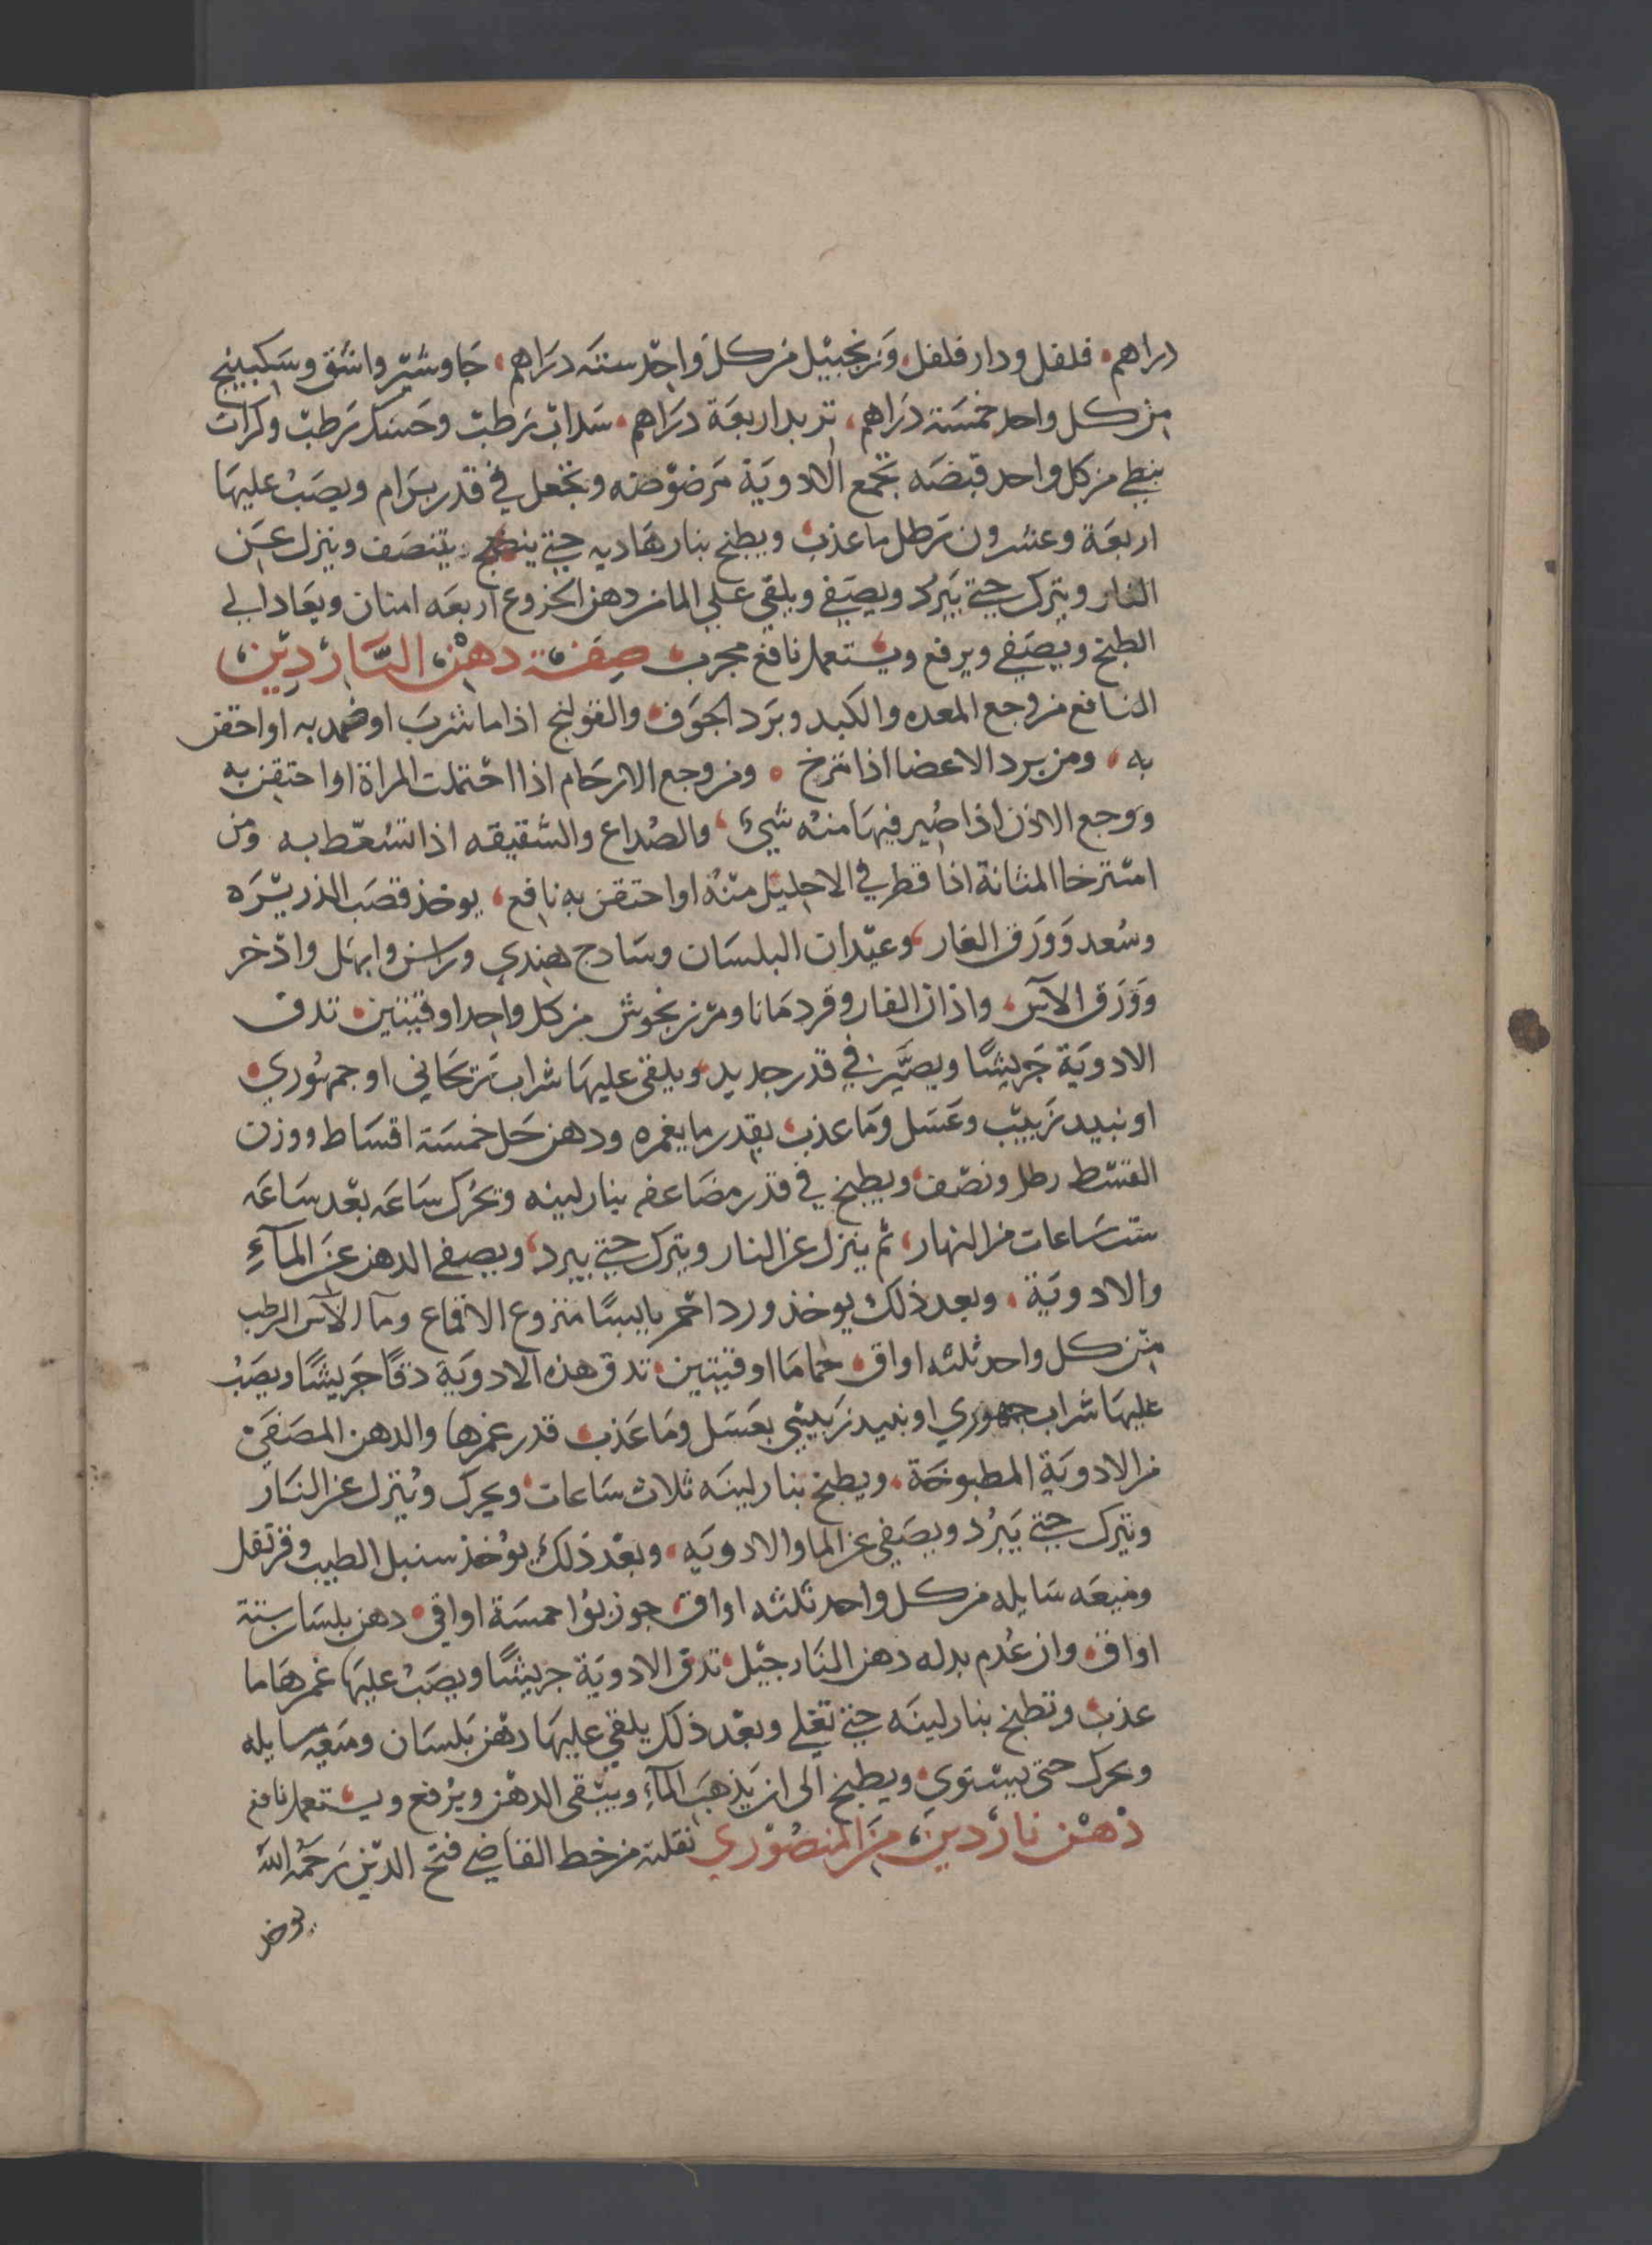 دراهم، فلفل ودار فلفل، وزنجبيل من كل واحد ستة دراهم، جاوشير واشق وسكبينج
من كل واحد خمسة دراهم، تربد اربعة دراهم، سداب رطب وحسك رطب وكرات
نبطي من كل واحد قبضه تجمع الادوية مرضوضه وتجعل في قدر برام ويصب عليها
اربعة وعشرون رطل ما عذب، ويطبخ بنار هاديه حتى يتنصف وينزل عن
النار ويترك حتى يبرد ويصفى ويلقي علي الما من دهن الخروع اربعه امنان ويعاد الي
الطبخ ويصفي ويرفع ويستعمل نافع مجرب، صفة دهن الناردين،
النافع من وجع المعده والكبد وبرد الجوف، والقولنج اذا ما شرب او ضمد به او احتقن
به، ومن برد الاعضا اذا تمرخ، ومن وجع الارحام اذا احتملت المراة او احتقن به
ووجع الاذن اذا صير فيها منه شيء، والصداع والشقيقه اذا تسعط به ومن
استرخا المثانة اذا قطر في الاحليل منه او احتقن به نافع، يوخذ قصب الذريره
وسعد وورق الغار، وعيدان البلسان وسادج هندي وراسن وابهل واذخر
وورق الآس، واذان الفار وقردمانا ومرزنجوش من كل واحد اوقيتين، تدق
الادوية جريشا ويصير في قدر جديد، ويلقي عليها شراب ريحاني او جمهوري،
او نبيد زبيب وعسل وما عذب، بقدر ما يغمره ودهن حل خمسة اقساط ووزن
القسط رطل ونصف، ويطبخ في قدر مضاعفه بنار لينه وتحرك ساعه بعد ساعه
ست ساعات من النهار، ثم ينزل عن النار ويترك حتى يبرد، ويصفي الدهن عن المآء
والادوية، وبعد ذلك يوخذ ورد احمر يابسا منزوع الاقماع ومآ الآس الرطب
من كل واحد ثلثه اواق، حماما اوقيتين، تدق هذه الادوية دقا جريشا ويصب
عليها شراب جمهوري او نبيد زبيبي بعسل وما عذب، قدر غمرها والدهن المصفى
من الادوية المطبوخة، ويطبخ بنار لينه ثلاث ساعات، ويحرك وينزل عن النار
ويترك حتى يبرد ويصفي عن الما والادويه، وبعد ذلك يوخذ سنبل الطيب وقرنفل
وميعه سايله من كل واحد ثلثه اواق، جوز بوا خمسة اواقي، دهن بلسان ستة
اواق، وان عدم بدله دهن النارجيل، تدق الادوية جريشا ويصب عليها غمرها ما
عذب، وتطبخ بنار لينه حتى تغلي وبعد ذلك يلقي عليها دهن بلسان وميعه سايله
ويحرك حتى يستوي، ويطبخ الى ان يذهب المآء ويبقى الدهن ويرفع ويستعمل نافع
دهن ناردين، من المنصوري نقلته من خط القاضي فتح الدين رحمه الله
يوخذ